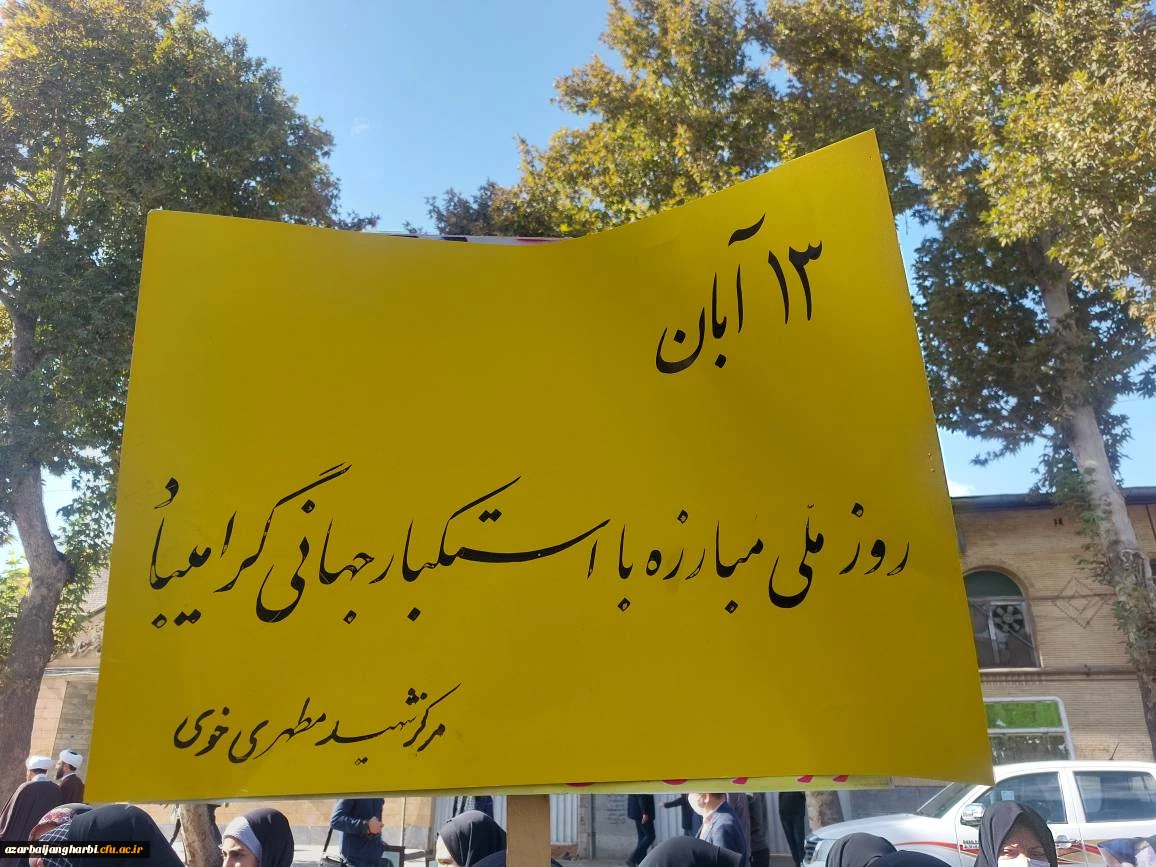 ۱۳ آبان
روز ملّی مبارزه با استکبار جهانی گرامیباد
مرکز شهید مطهری خوی
azarbaijangharbi.cfu.ac.ir